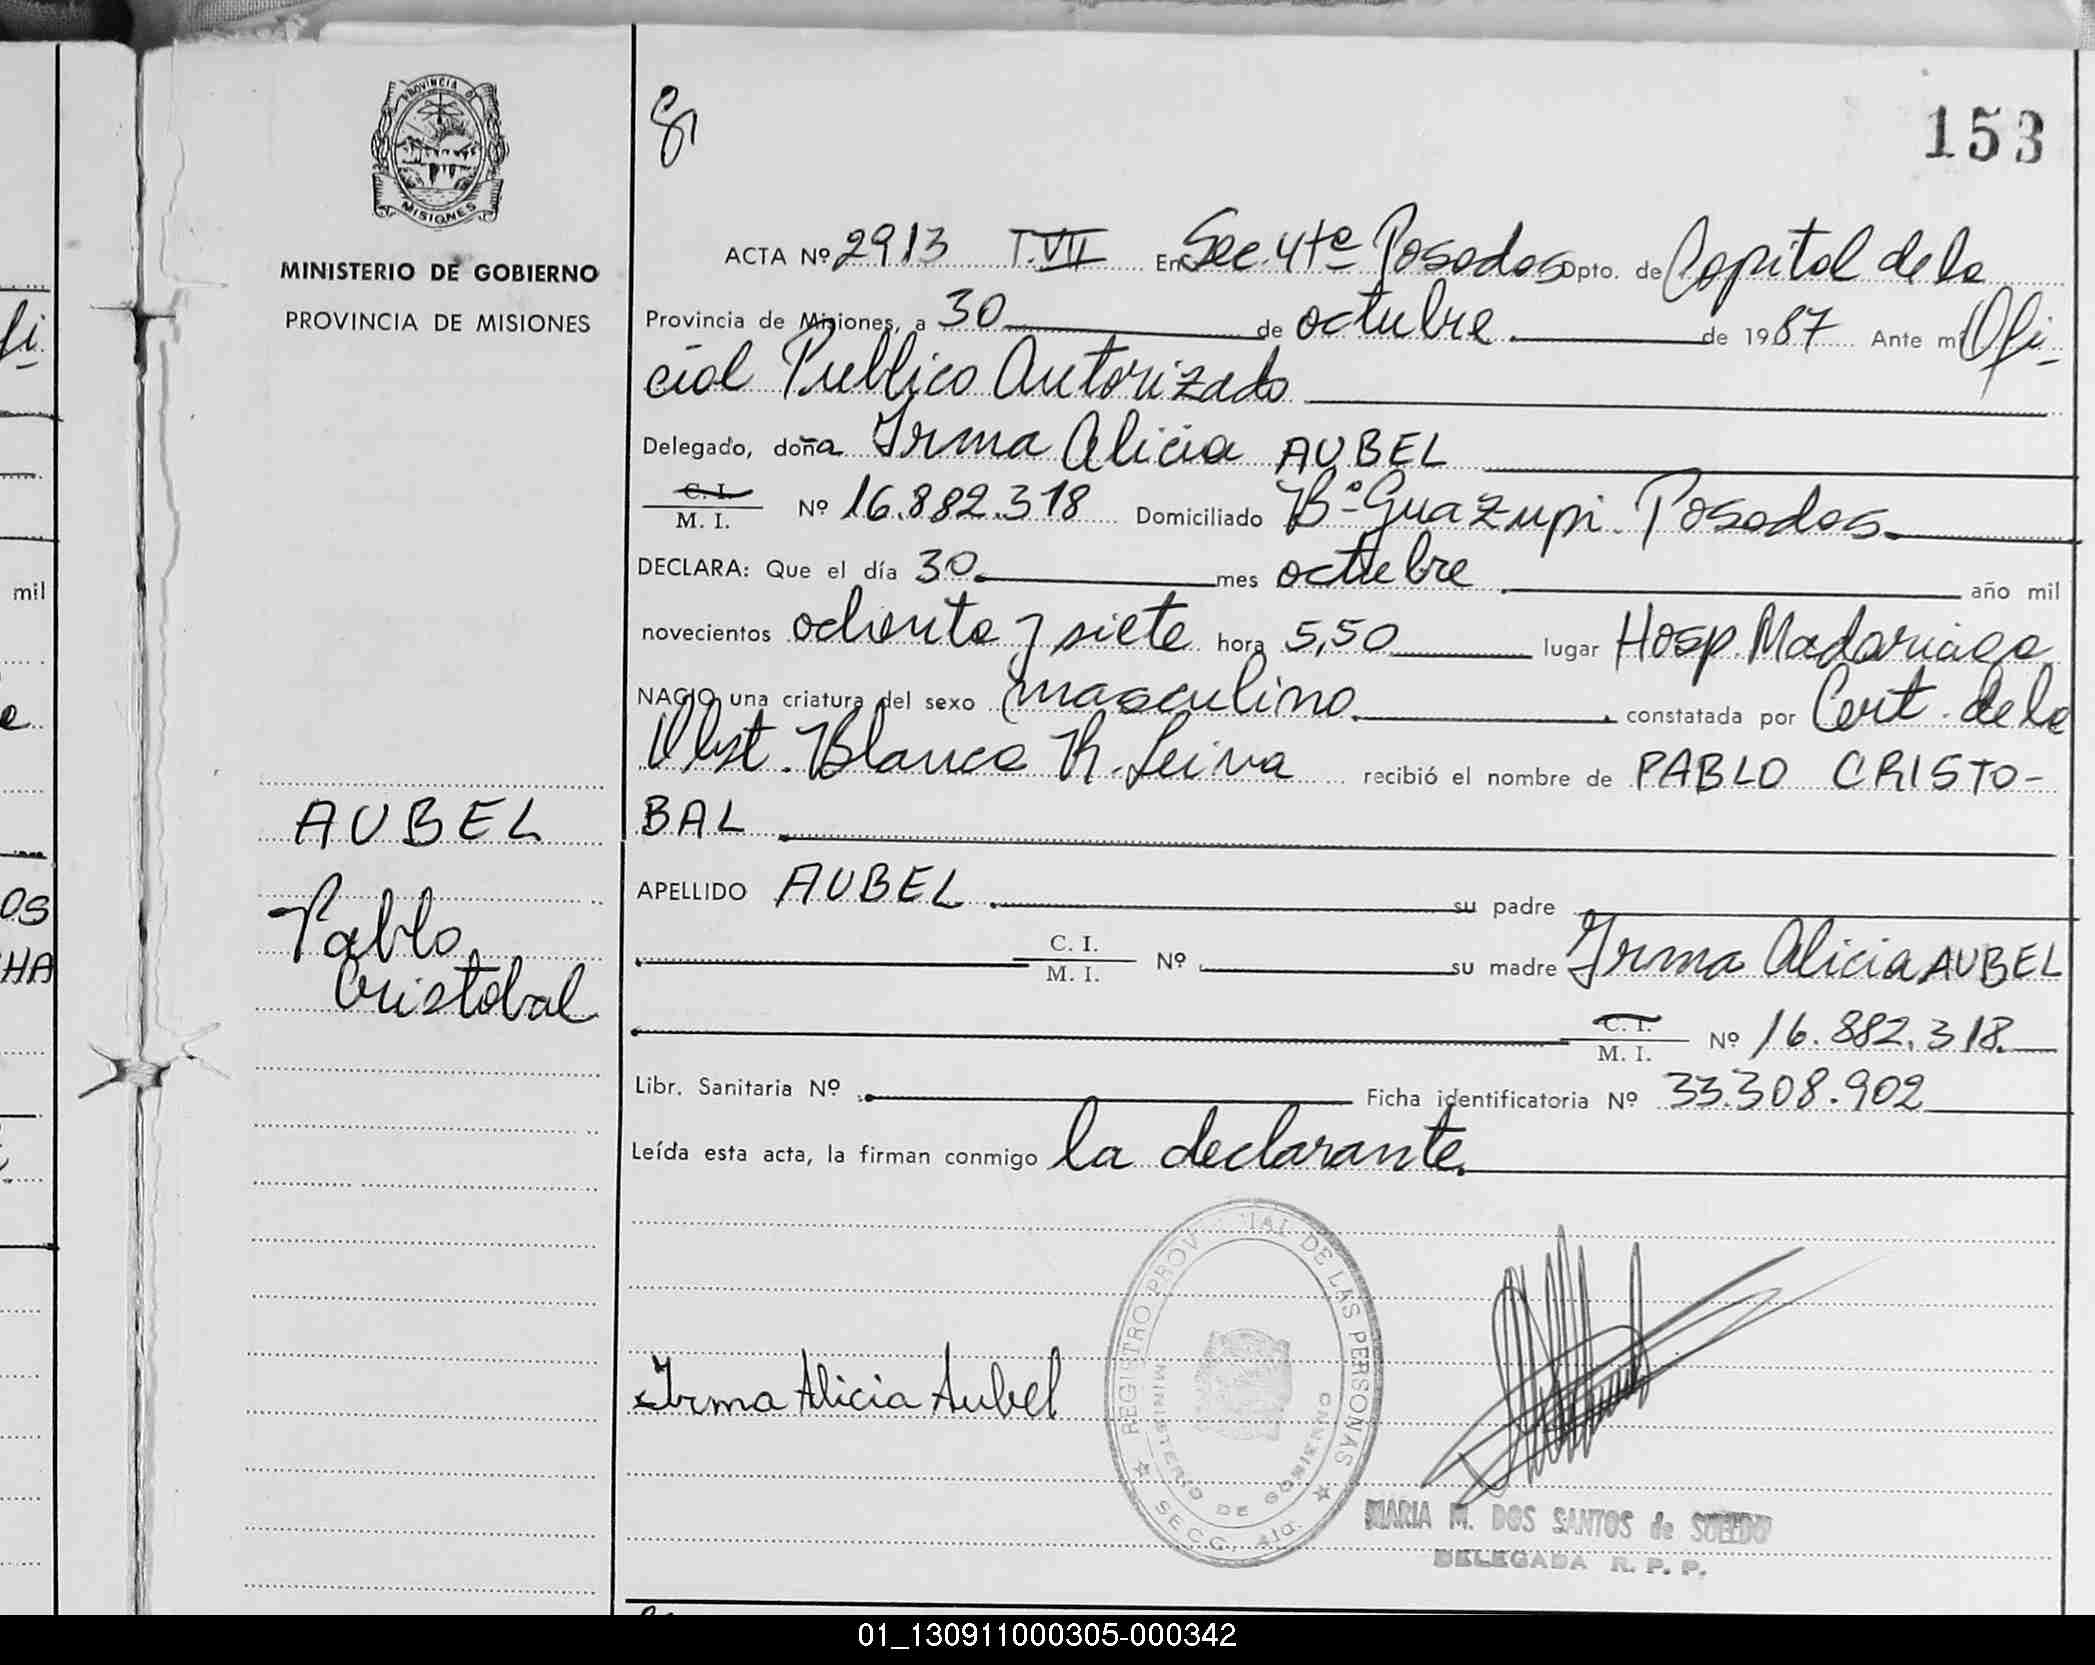 PROVINCIA DE
MISIONES
MINISTERIO DE GOBIERNO
PROVINCIA DE MISIONES
AUBEL
Pablo
Cristobal
153
ACTA Nº 2913 T.VII En Sec. 4ta Posadas Dpto. de Capital de la
Provincia de Misiones, a 30 de octubre de 1987 Ante mi Ofi-
cial Publico Autorizado
Delegado, doña Irma Alicia AUBEL
C. I.
M. I. Nº 16.882.318 Domiciliado Bº Guazupi Posadas.
DECLARA: Que el día 30 mes octubre año mil
novecientos ochenta y siete hora 5,50 lugar Hosp. Madariaga
NACIO una criatura del sexo masculino constatada por Cert. de la
Obst. Blanca R. Leiva recibió el nombre de PABLO CRISTO-
BAL
APELLIDO AUBEL su padre
C. I.
M. I. Nº su madre Irma Alicia AUBEL
C. I.
M. I. Nº 16.882.318
Libr. Sanitaria Nº Ficha identificatoria Nº 33.308.902
Leída esta acta, la firman conmigo la declarante.
Irma Alicia Aubel
REGISTRO PROVINCIAL DE LAS PERSONAS
MINISTERIO DE GOBIERNO
SECC. 4ta.
MARIA M. DOS SANTOS de
DELEGADA R. P. P.
fi.
mil
e
OS
HA
01_130911000305-000342